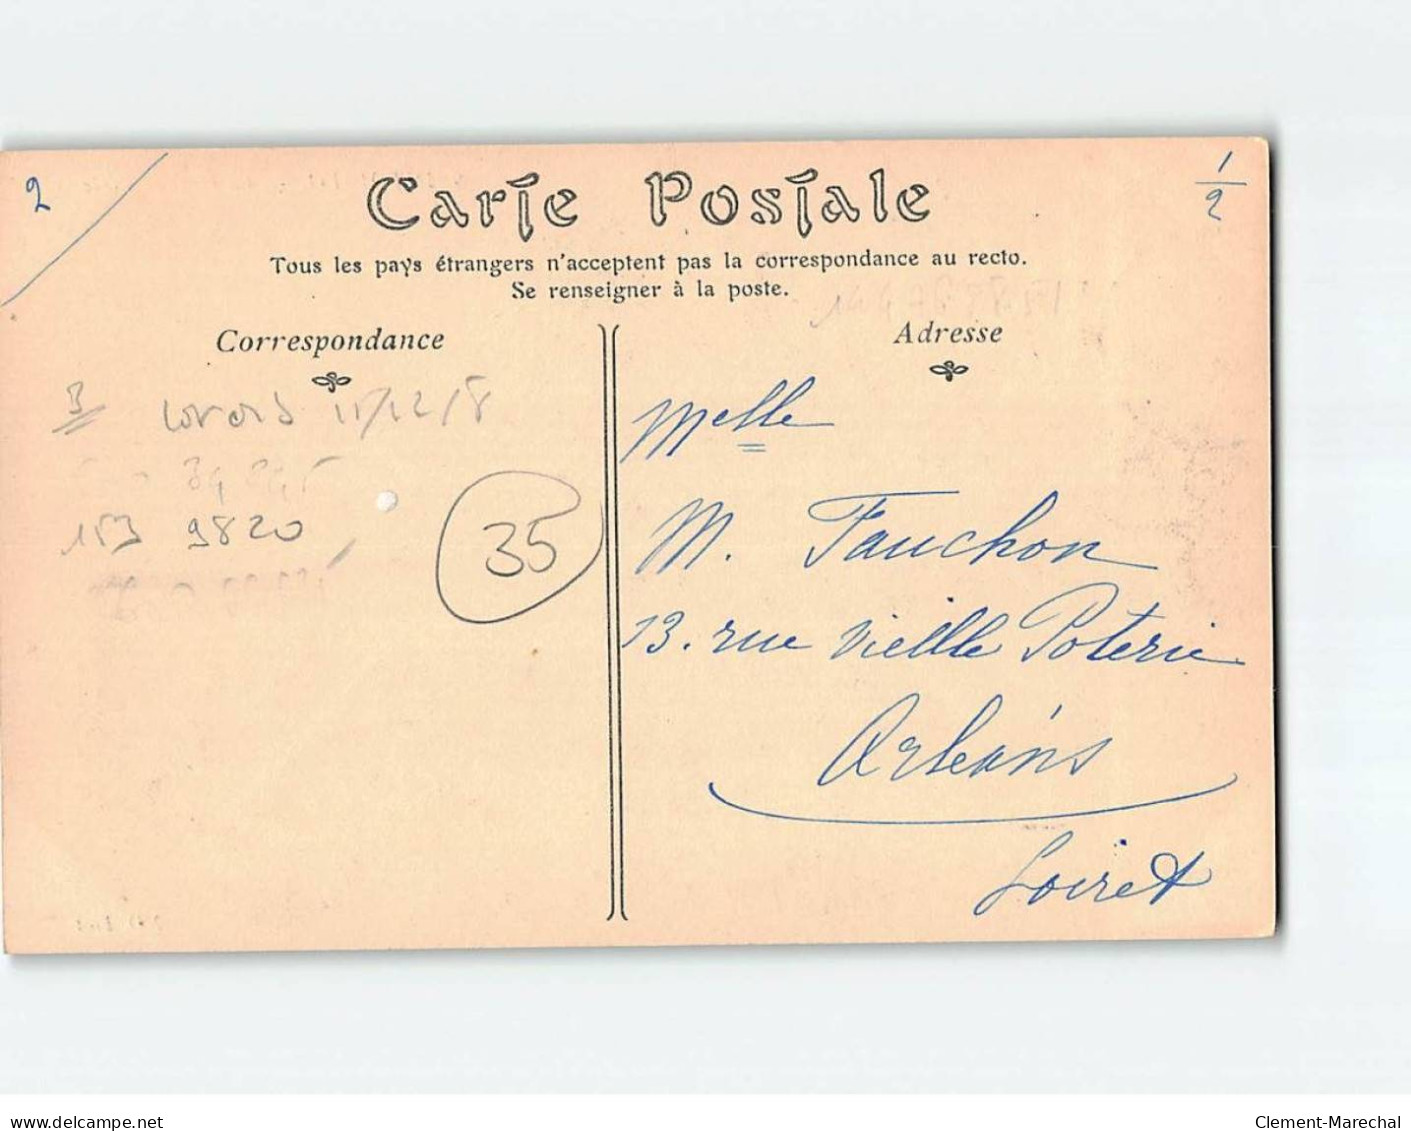 2
1/2
Carte Postale
Tous les pays étrangers n'acceptent pas la correspondance au recto.
Se renseigner à la poste.
Correspondance
Adresse
3
11/12/8
153 9820
35
Melle
M. Fauchon
13. rue Vieille Poterie
Orléans
Loiret
www.delcampe.net
Clement-Marechal